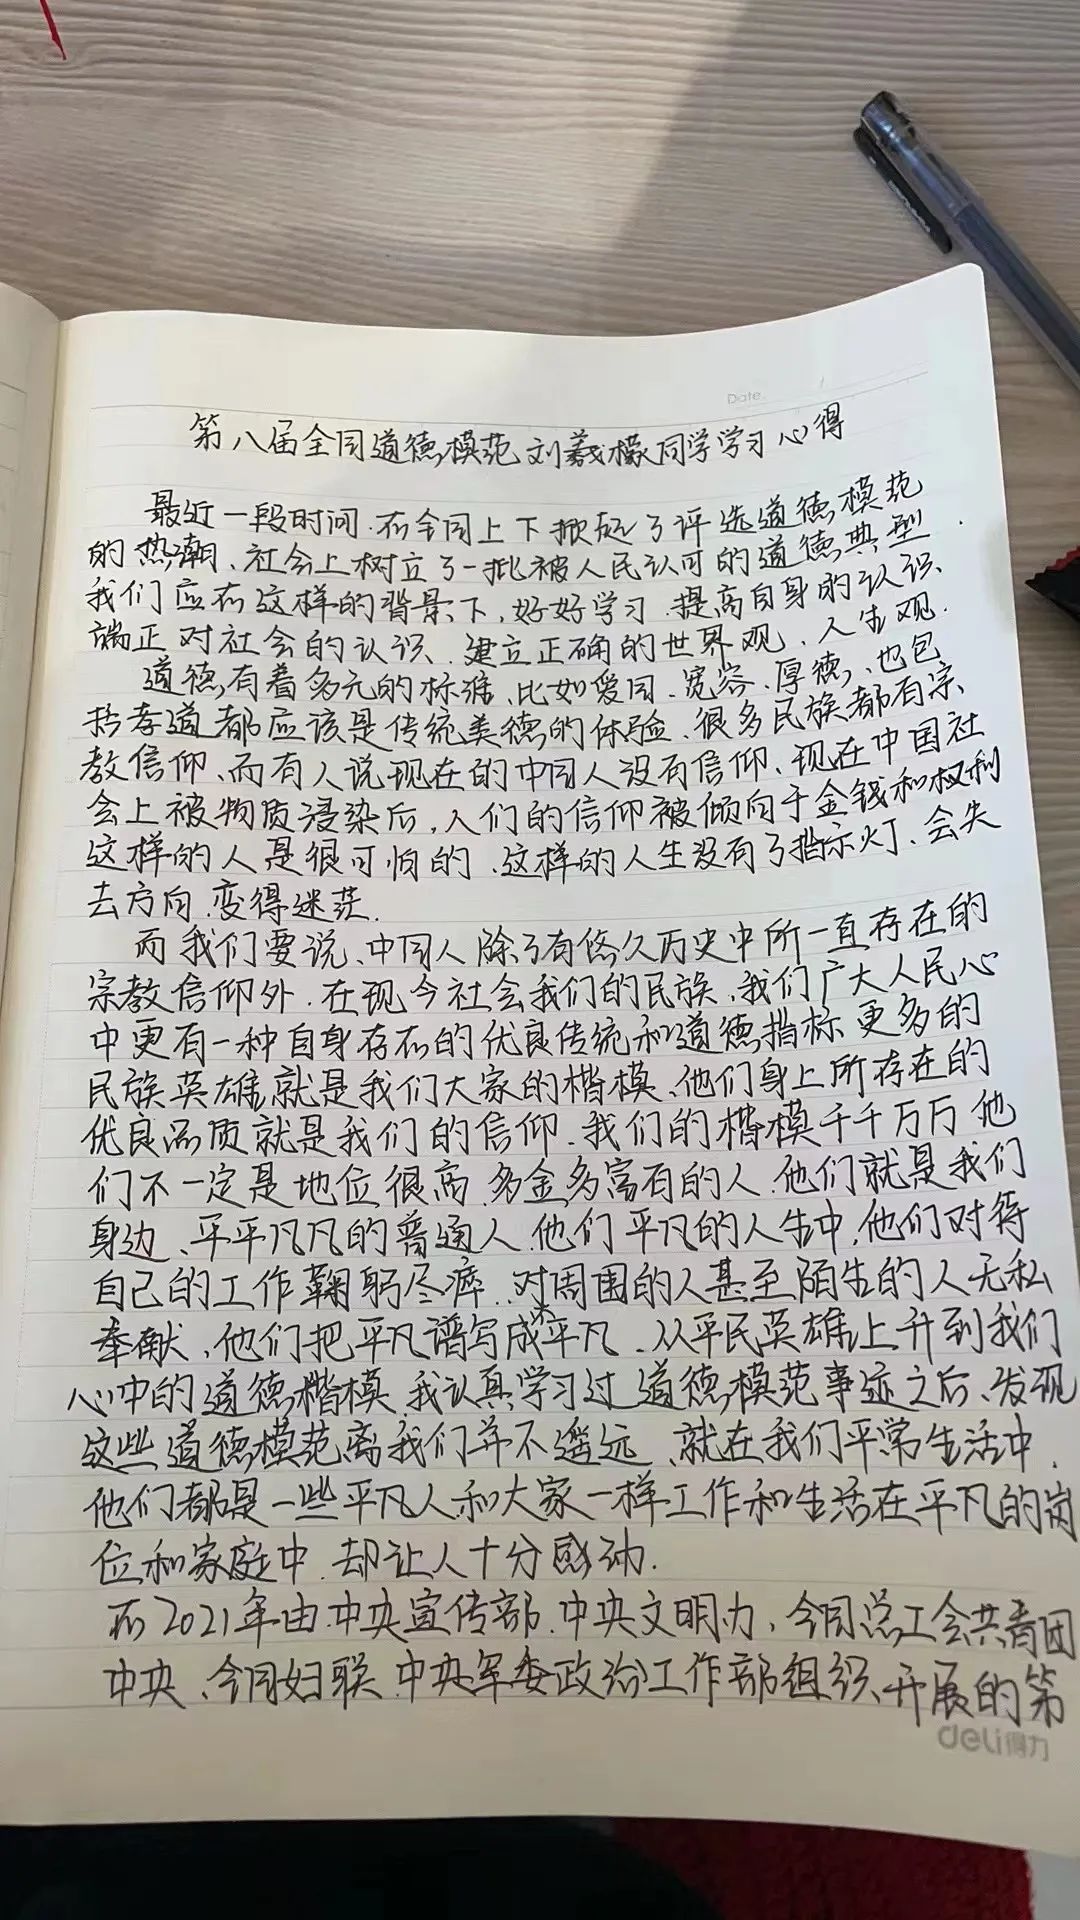 Date.
第八届全国道德模范刘羲檬同学学习心得
最近一段时间.在全国上下掀起了评选道德模范
的热潮、社会上树立了一批被人民认可的道德典型.
我们应在这样的背景下,好好学习.提高自身的认识、
端正对社会的认识、建立正确的世界观、人生观.
道德有着多元的标准、比如爱国.宽容.厚德,也包
括孝道都应该是传统美德的体验.很多民族都有宗
教信仰、而有人说现在的中国人没有信仰、现在中国社
会上被物质浸染后,人们的信仰被倾向于金钱和权利
这样的人是很可怕的、这样的人生没有了指示灯、会失
去方向.变得迷茫.
而我们要说、中国人除了有悠久历史中所一直存在的
宗教信仰外.在现今社会我们的民族,我们广大人民心
中更有一种自身存在的优良传统和道德指标更多的
民族英雄就是我们大家的楷模、他们身上所存在的
优良品质就是我们的信仰.我们的楷模千千万万他
们不一定是地位很高.多金多富有的人.他们就是我们
身边、平平凡凡的普通人.他们平凡的人生中,他们对待
自己的工作鞠躬尽瘁.对周围的人甚至陌生的人无私
奉献、他们把平凡谱写成不平凡、从平民英雄上升到我们
心中的道德楷模.我认真学习过道德模范事迹之后、发现
这些道德模范离我们并不遥远、就在我们平常生活中.
他们都是一些平凡人和大家一样工作和生活在平凡的岗
位和家庭中.却让人十分感动.
在2021年由中央宣传部.中央文明办、全国总工会共青团
中央、全国妇联.中央军委政治工作部组织、开展的第
deli得力